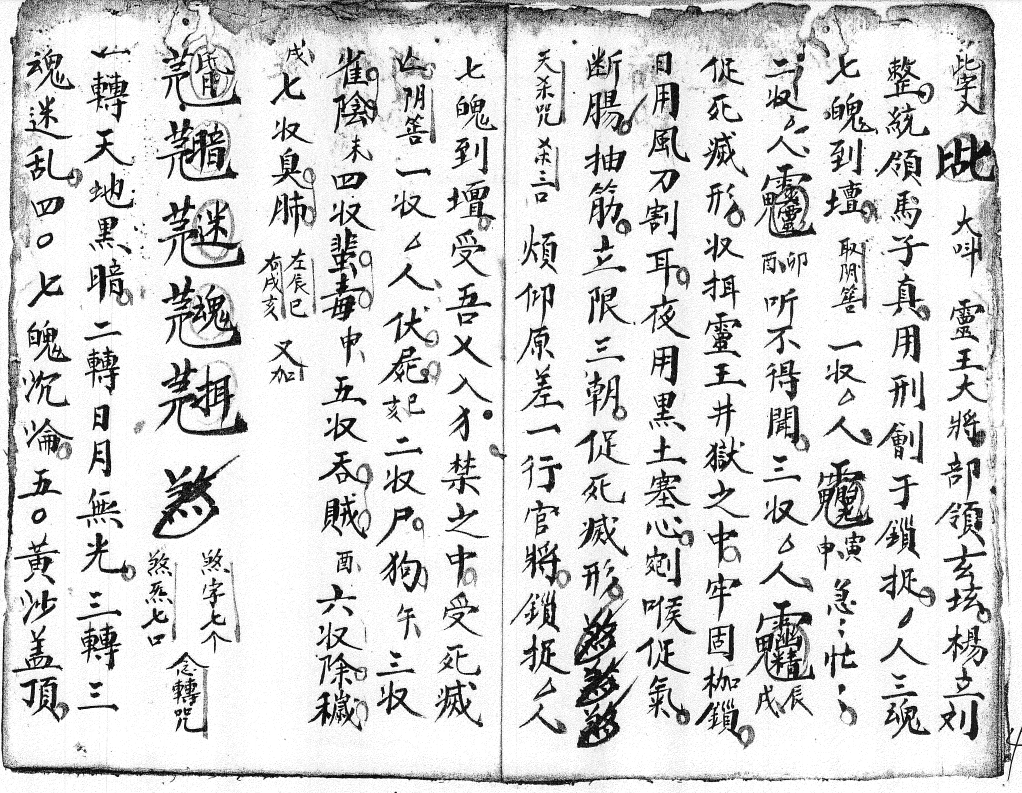 此字入 大叫 靈王大將部領玄坛楊立刘
整統領馬子真用刑劊于鎖捉厶人三魂
七魄到壇 取阴筶 一收厶人 寅申 急〻忙〻
二收厶人 卯酉 听不得聞三收厶人 辰戌
促死滅形收挕靈王井獄之中牢固枷鎖
日用風刀割耳夜用黑土塞心剜喉促氣
断腸抽筋立限三朝促死滅形煞煞煞
天杀咒 杀三口 煩仰原差一行官將鎖捉厶人
七魄到壇受吾乂入犭禁之中受死滅
阴筶 一收厶人伏屍 巳亥 二收尸狗 午 三收
雀陰 未 四收蜚毒 申 五收吞賊 酉 六收除穢
戌 七收臭肺 左辰巳 右戌亥 又加
煞 煞字七个 煞炁七口 念轉咒
一轉天地黑暗二轉日月無光三轉三
魂迷乱四〇七魄沉淪五〇黃沙盖頂